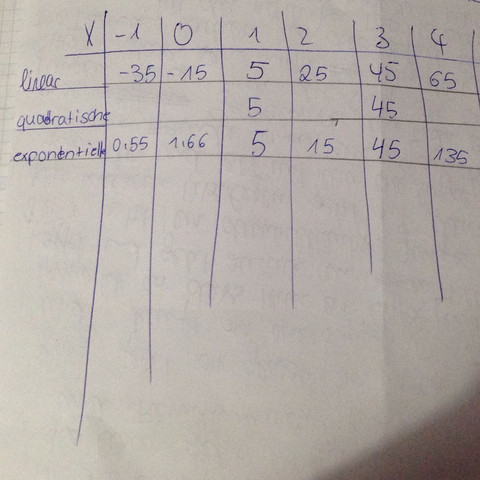 X -1 0 1 2 3 4
linear -35 -15 5 25 45 65
quadratische 5 45
exponentielle 0,55 1,66 5 15 45 135